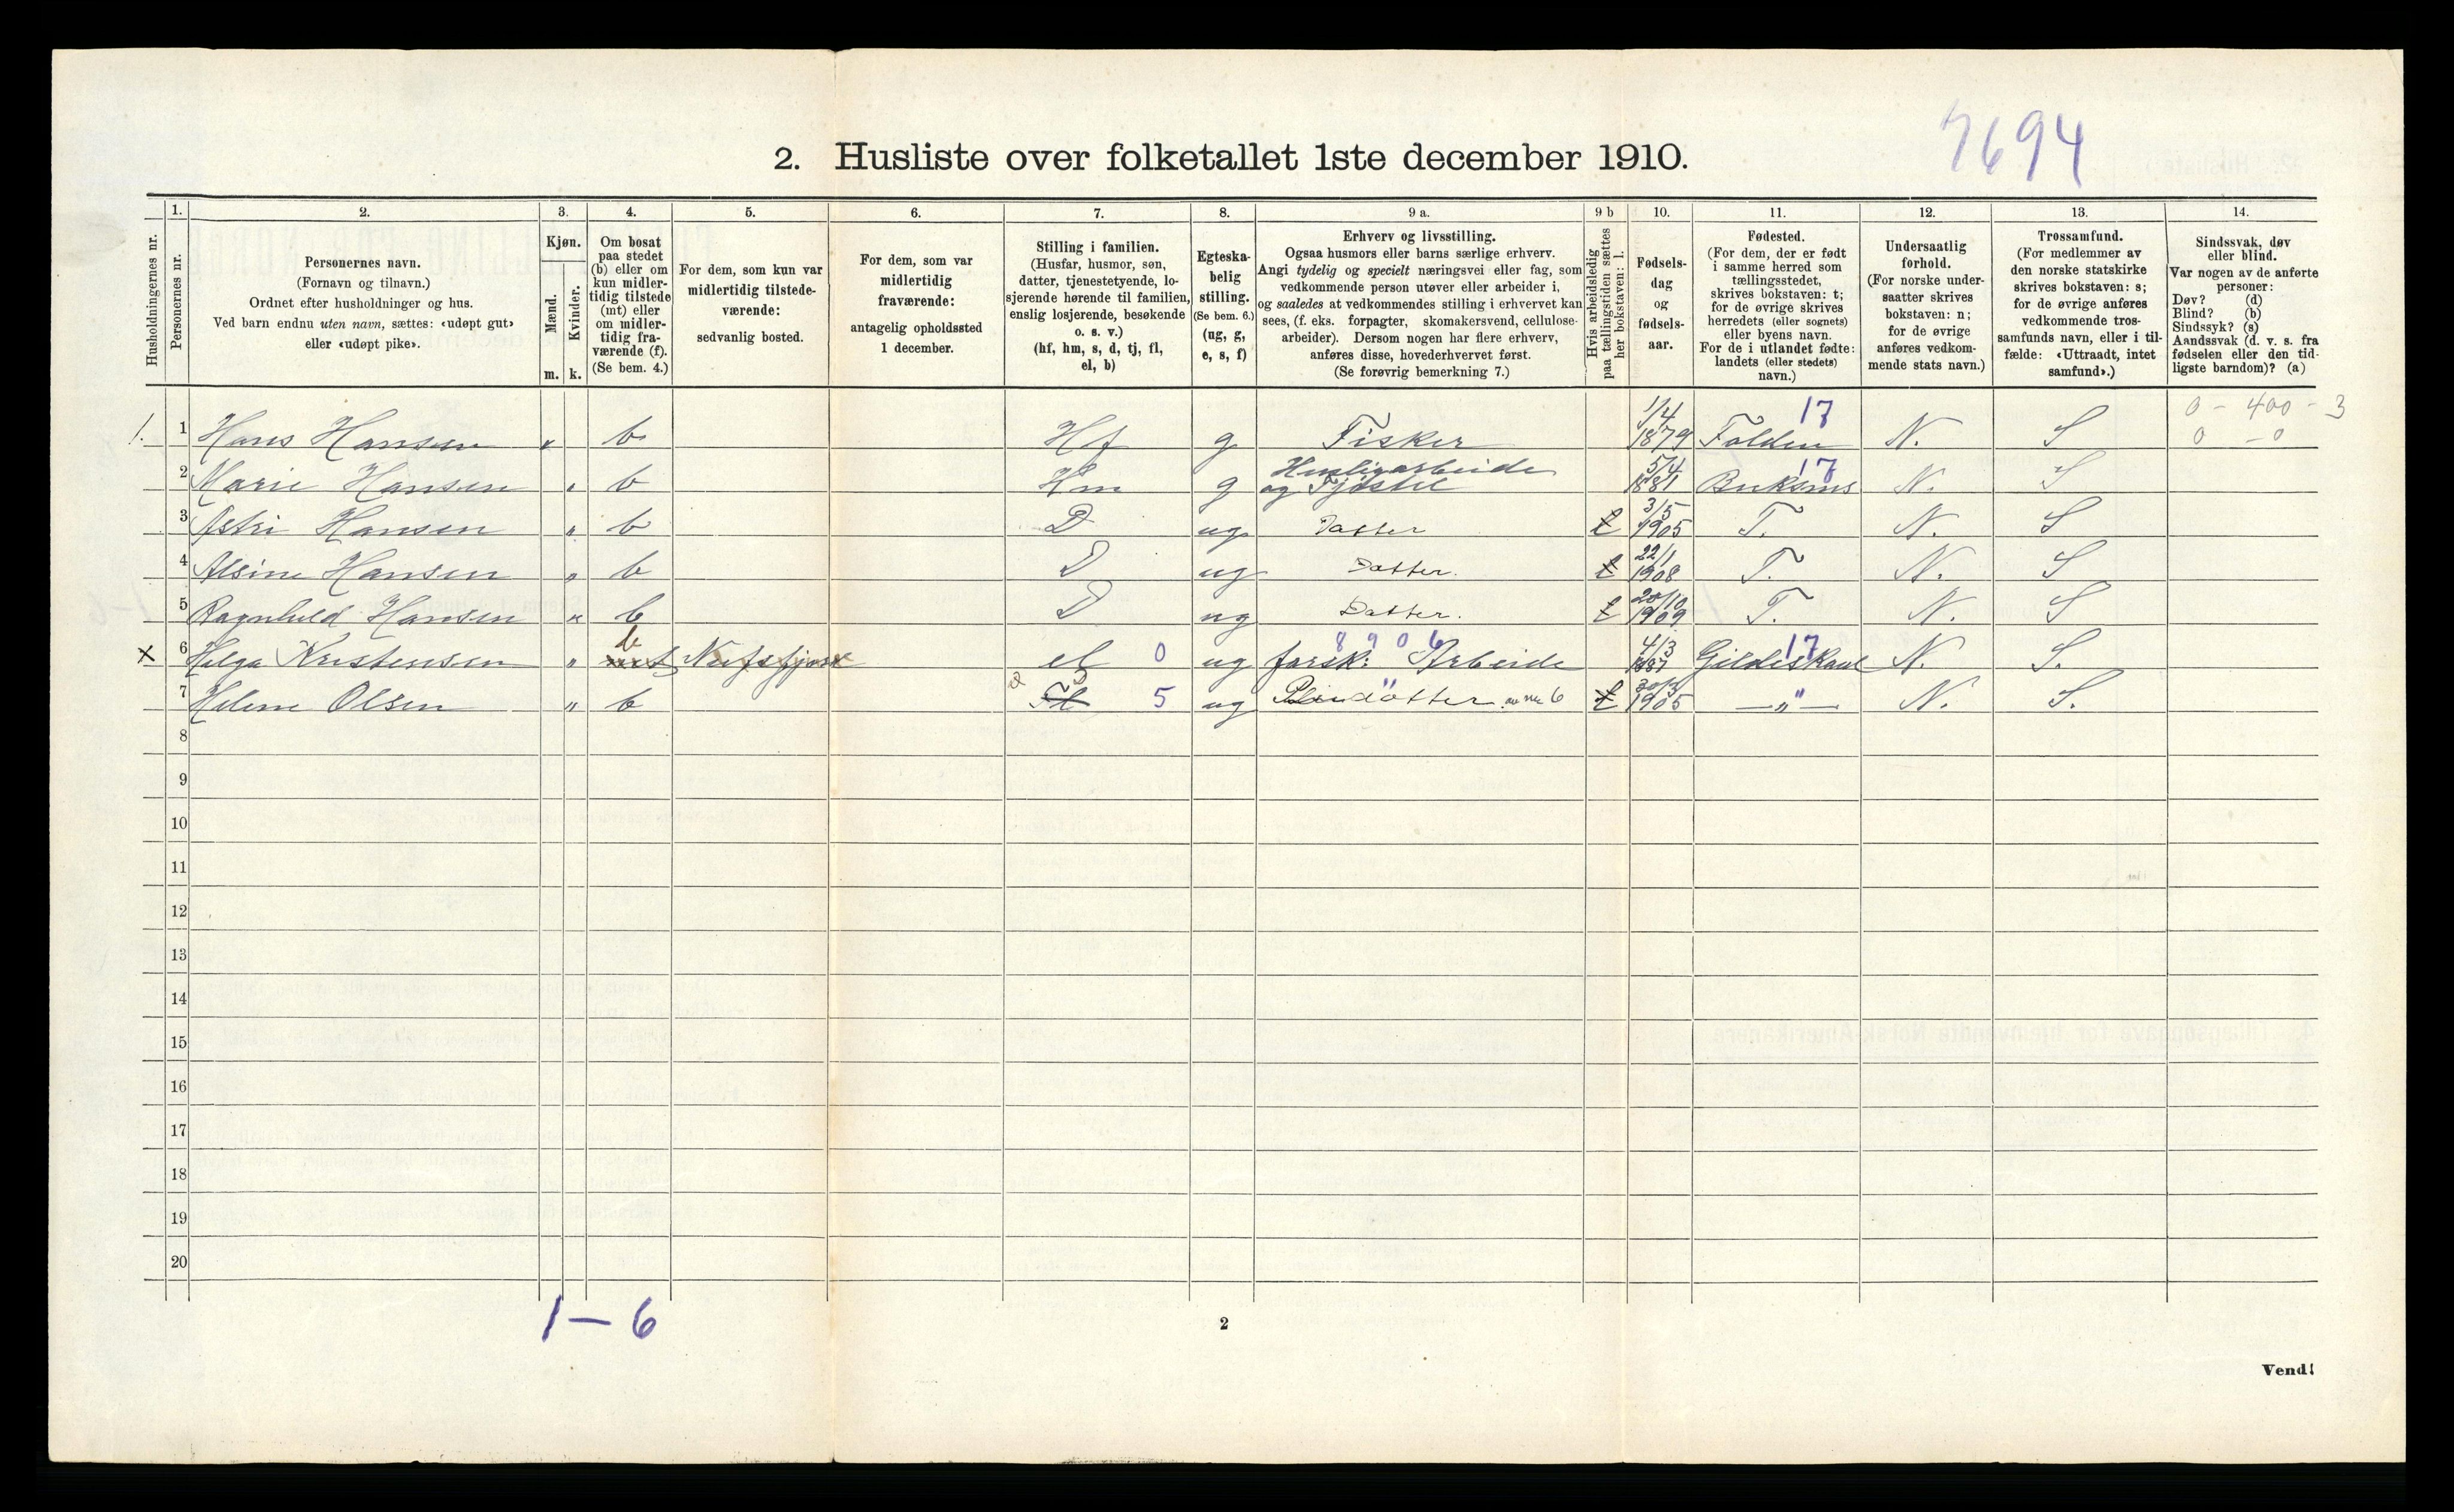 7694
2. Husliste over folketallet 1ste december 1910.
Husholdningernes nr.
1.
Personernes nr.
2.
Personernes navn.
(Fornavn og tilnavn.)
Ordnet efter husholdninger og hus.
Ved barn endnu uten navn, sættes: «udøpt gut»
eller «udøpt pike».
3.
Kjøn.
Mænd.
Kvinder.
m. k.
4.
Om bosat
paa stedet
(b) eller om
kun midler-
tidig tilstede
(mt) eller
om midler-
tidig fra-
værende (f).
(Se bem. 4.)
5.
For dem, som kun var
midlertidig tilstede-
værende:
sedvanlig bosted.
6.
For dem, som var
midlertidig
fraværende:
antagelig opholdssted
1 december.
7.
Stilling i familien.
(Husfar, husmor, søn,
datter, tjenestetyende, lo-
sjerende hørende til familien,
enslig losjerende, besøkende
o. s. v.)
(hf, hm, s, d, tj, fl,
el, b)
8.
Egteska-
belig
stilling.
(Se bem. 6.)
(ug, g,
e, s, f)
9 a.
Erhverv og livsstilling.
Ogsaa husmors eller barns særlige erhverv.
Angi tydelig og specielt næringsvei eller fag, som
vedkommende person utøver eller arbeider i,
og saaledes at vedkommendes stilling i erhvervet kan
sees, (f. eks. forpagter, skomakersvend, cellulose-
arbeider). Dersom nogen har flere erhverv,
anføres disse, hovederhvervet først.
(Se forøvrig bemerkning 7.)
9 b
Hvis arbeidsledig
paa tællingstiden sættes
her bokstaven: l.
10.
Fødsels-
dag
og
fødsels-
aar.
11.
Fødested.
(For dem, der er født
i samme herred som
tællingsstedet,
skrives bokstaven: t;
for de øvrige skrives
herredets (eller sognets)
eller byens navn.
For de i utlandet fødte:
landets (eller stedets)
navn.)
12.
Undersaatlig
forhold.
(For norske under-
saatter skrives
bokstaven: n;
for de øvrige
anføres vedkom-
mende stats navn.)
13.
Trossamfund.
(For medlemmer av
den norske statskirke
skrives bokstaven: s;
for de øvrige anføres
vedkommende tros-
samfunds navn, eller i til-
fælde: «Uttraadt, intet
samfund».)
14.
Sindssvak, døv
eller blind.
Var nogen av de anførte
personer:
Døv? (d)
Blind? (b)
Sindssyk? (s)
Aandssvak (d. v. s. fra
fødselen eller den tid-
ligste barndom)? (a)
1. 1 Hans Hansen " b Hf g Fisker 1/4 1879 Folden 17 N. S 0 - 400 - 3
0 - 0
2 Marie Hansen " b Hm g Husligarbeide og Fjøstel 5/4 1881 Buksnes 17 N. S
3 Astri Hansen " b D ug Datter l 3/5 1905 T. N. S
4 Alsine Hansen " b D ug Datter. l 22/1 1908 T. N. S
5 Ragnhild Hansen " b D ug Datter. l 20/10 1909 T. N. S
x 6 Helga Kristensen " mt b Nufsfjord el 0 ug forsk: Arbeide 8906 4/3 1887 Gildeskaal 17 N. S.
7 Helene Olsen " b Fl 5 ug Pleiedatter av nr 6 l 1905 — " — N. S.
8
9
10
11
12
13
14
15
16
17
18
19
20
1 — 6
2
Vend!